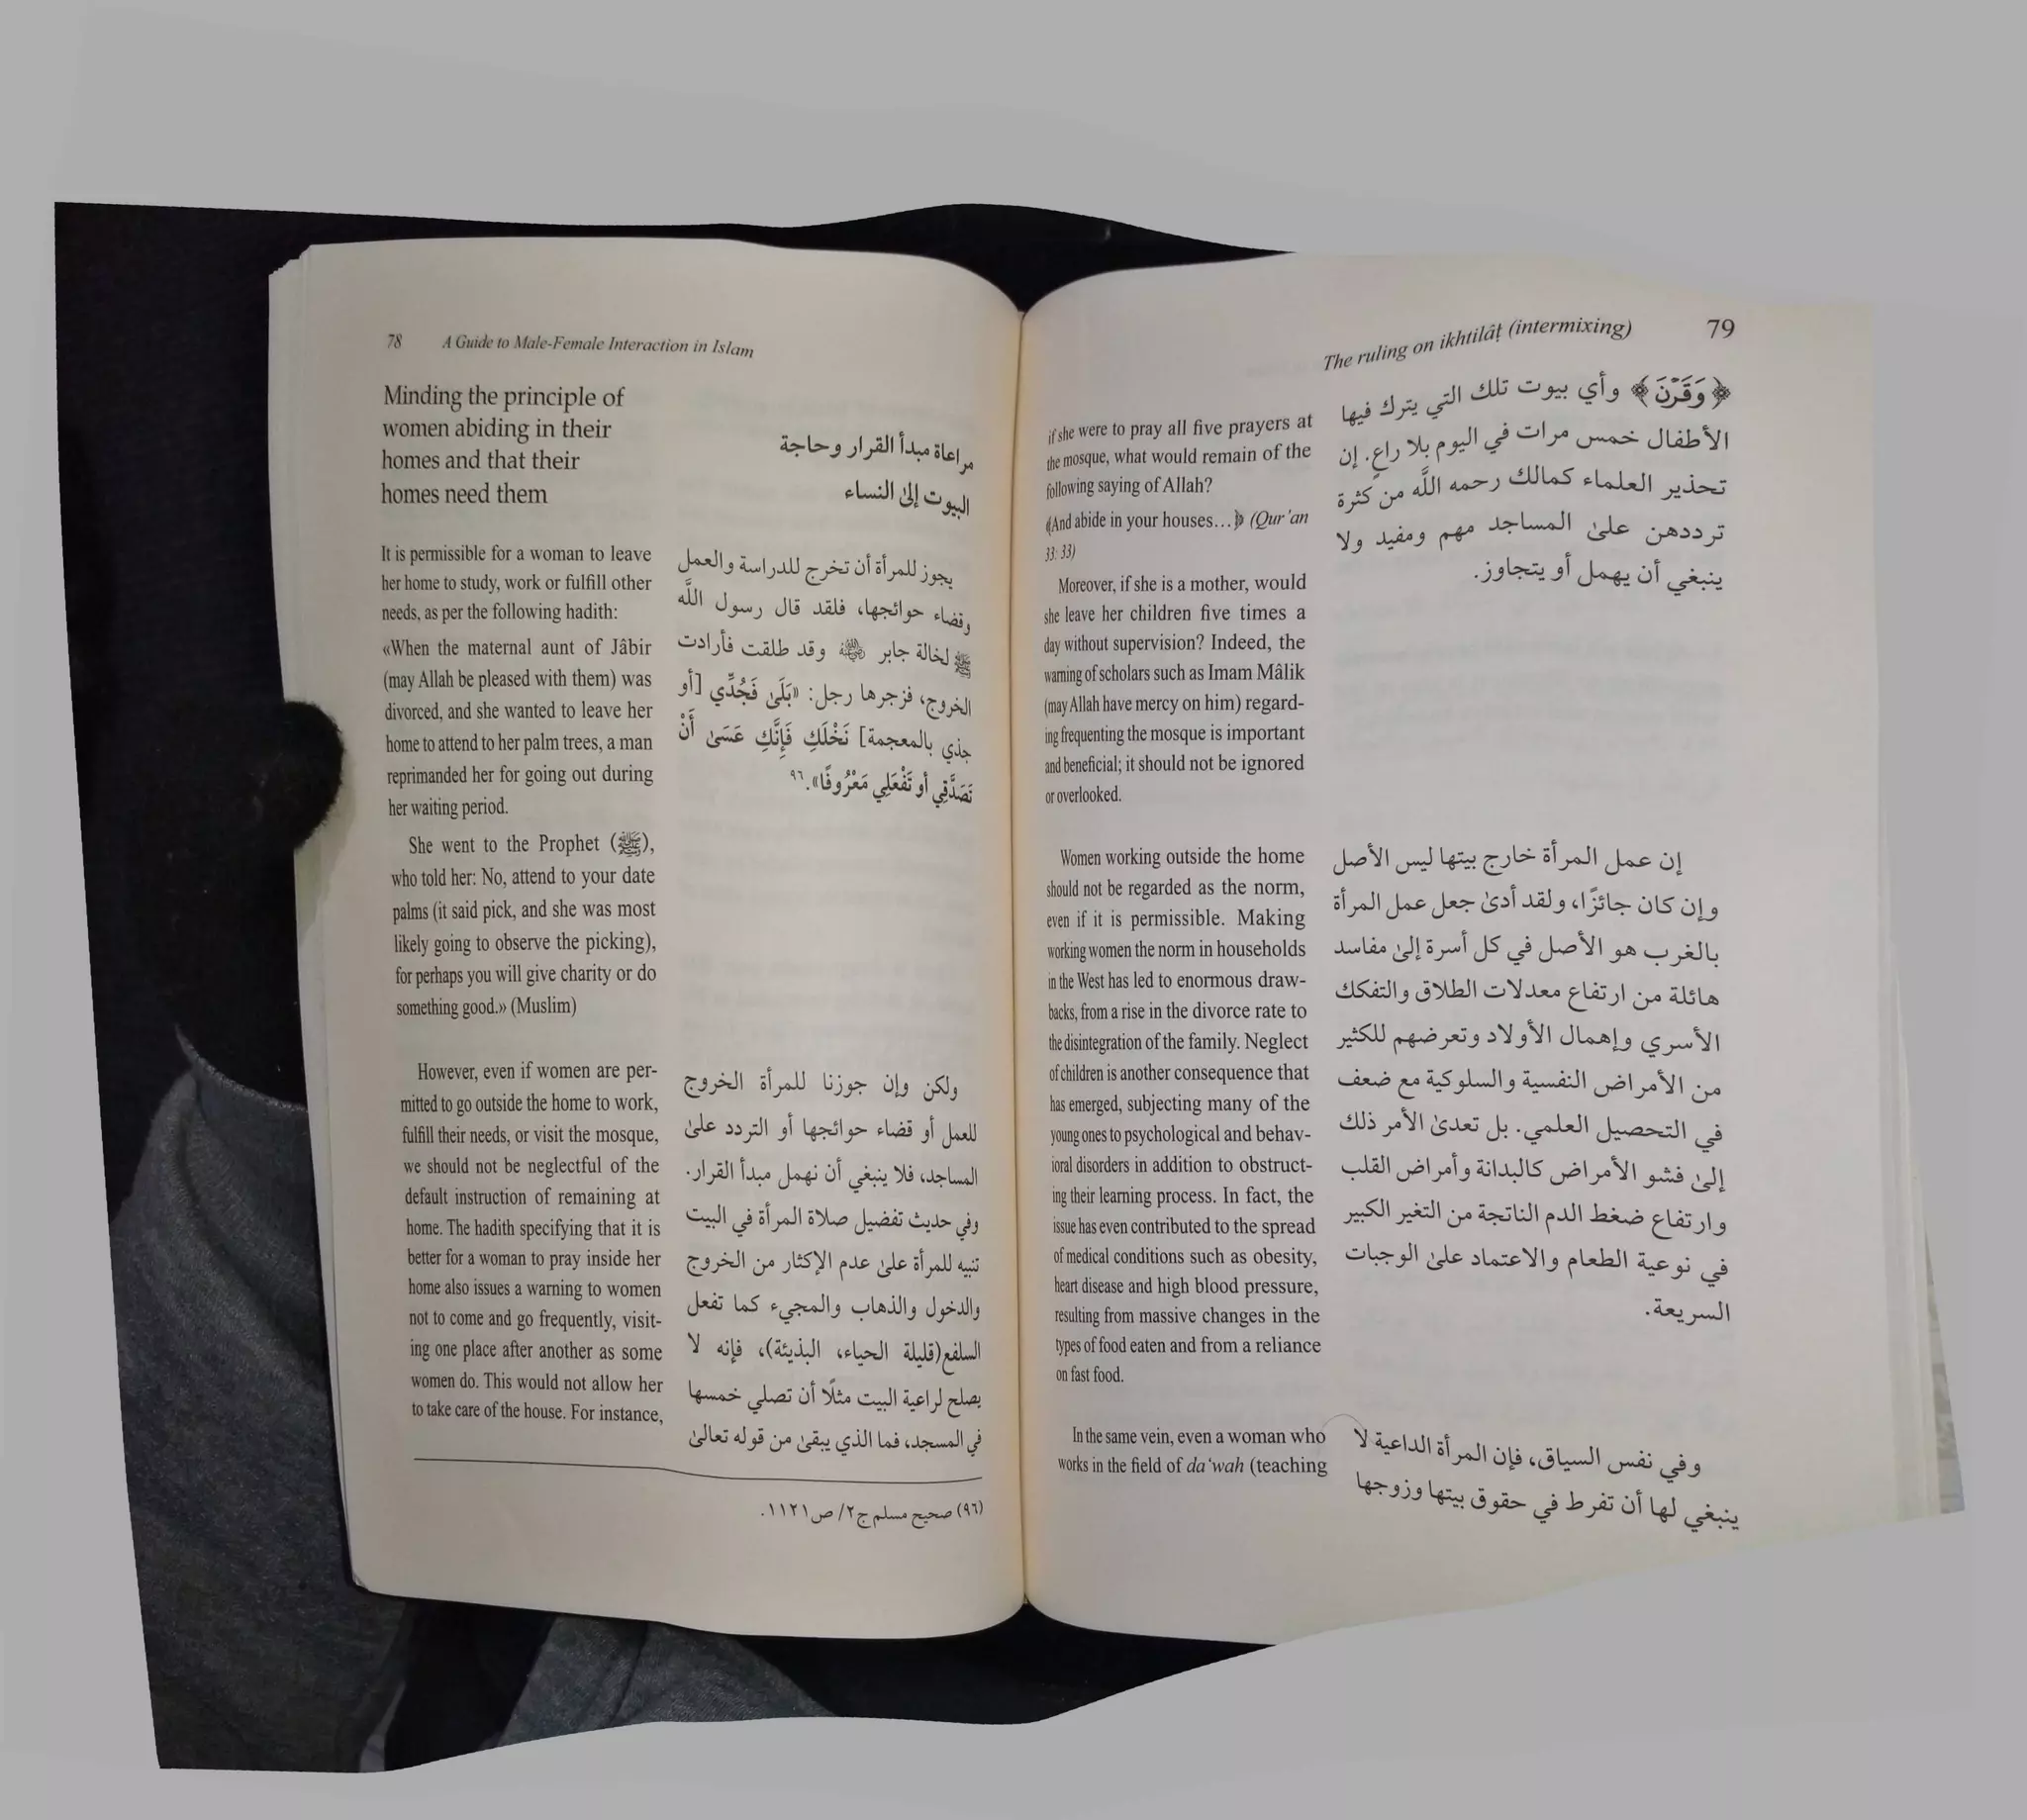 78 A Guide to Male-Female Interaction in Islam
Minding the principle of
women abiding in their
homes and that their
homes need them
It is permissible for a woman to leave
her home to study, work or fulfill other
needs, as per the following hadith:
«When the maternal aunt of Jâbir
(may Allah be pleased with them) was
divorced, and she wanted to leave her
home to attend to her palm trees, a man
reprimanded her for going out during
her waiting period.
She went to the Prophet (ﷺ),
who told her: No, attend to your date
palms (it said pick, and she was most
likely going to observe the picking),
for perhaps you will give charity or do
something good.» (Muslim)
However, even if women are per-
mitted to go outside the home to work,
fulfill their needs, or visit the mosque,
we should not be neglectful of the
default instruction of remaining at
home. The hadith specifying that it is
better for a woman to pray inside her
home also issues a warning to women
not to come and go frequently, visit-
ing one place after another as some
women do. This would not allow her
to take care of the house. For instance,
مراعاة مبدأ القرار وحاجة
البيوت إلىٰ النساء
يجوز للمرأة أن تخرج للدراسة والعمل
وقضاء حوائجها، فلقد قال رسول اللَّه
ﷺ لخالة جابر ﵁ وقد طلقت فأرادت
الخروج، فزجرها رجل: «بَلَىٰ فَجُدِّي [أو
جذي بالمعجمة] نَخْلَكِ فَإِنَّكِ عَسَىٰ أَنْ
تَصَدَّقِي أو تَفْعَلِي مَعْرُوفًا».٩٦
ولكن وإن جوزنا للمرأة الخروج
للعمل أو قضاء حوائجها أو التردد علىٰ
المساجد، فلا ينبغي أن نهمل مبدأ القرار.
وفي حديث تفضيل صلاة المرأة في البيت
تنبيه للمرأة علىٰ عدم الإكثار من الخروج
والدخول والذهاب والمجيء كما تفعل
السلفع(قليلة الحياء، البذيئة)، فإنه لا
يصلح لراعية البيت مثلًا أن تصلي خمسها
في المسجد، فما الذي يبقىٰ من قوله تعالىٰ
(٩٦) صحيح مسلم ج٢/ ص١١٢١.
The ruling on ikhtilâṭ (intermixing) 79
if she were to pray all five prayers at
the mosque, what would remain of the
following saying of Allah?
﴾And abide in your houses…﴿ (Qur’an
33: 33)
Moreover, if she is a mother, would
she leave her children five times a
day without supervision? Indeed, the
warning of scholars such as Imam Mâlik
(may Allah have mercy on him) regard-
ing frequenting the mosque is important
and beneficial; it should not be ignored
or overlooked.
Women working outside the home
should not be regarded as the norm,
even if it is permissible. Making
working women the norm in households
in the West has led to enormous draw-
backs, from a rise in the divorce rate to
the disintegration of the family. Neglect
of children is another consequence that
has emerged, subjecting many of the
young ones to psychological and behav-
ioral disorders in addition to obstruct-
ing their learning process. In fact, the
issue has even contributed to the spread
of medical conditions such as obesity,
heart disease and high blood pressure,
resulting from massive changes in the
types of food eaten and from a reliance
on fast food.
In the same vein, even a woman who
works in the field of da‘wah (teaching
﴿وَقَرْنَ﴾ وأي بيوت تلك التي يترك فيها
الأطفال خمس مرات في اليوم بلا راعٍ. إن
تحذير العلماء كمالك رحمه اللَّه من كثرة
ترددهن علىٰ المساجد مهم ومفيد ولا
ينبغي أن يهمل أو يتجاوز.
إن عمل المرأة خارج بيتها ليس الأصل
وإن كان جائزًا، ولقد أدىٰ جعل عمل المرأة
بالغرب هو الأصل في كل أسرة إلىٰ مفاسد
هائلة من ارتفاع معدلات الطلاق والتفكك
الأسري وإهمال الأولاد وتعرضهم للكثير
من الأمراض النفسية والسلوكية مع ضعف
في التحصيل العلمي. بل تعدىٰ الأمر ذلك
إلىٰ فشو الأمراض كالبدانة وأمراض القلب
وارتفاع ضغط الدم الناتجة من التغير الكبير
في نوعية الطعام والاعتماد علىٰ الوجبات
السريعة.
وفي نفس السياق، فإن المرأة الداعية لا
ينبغي لها أن تفرط في حقوق بيتها وزوجها